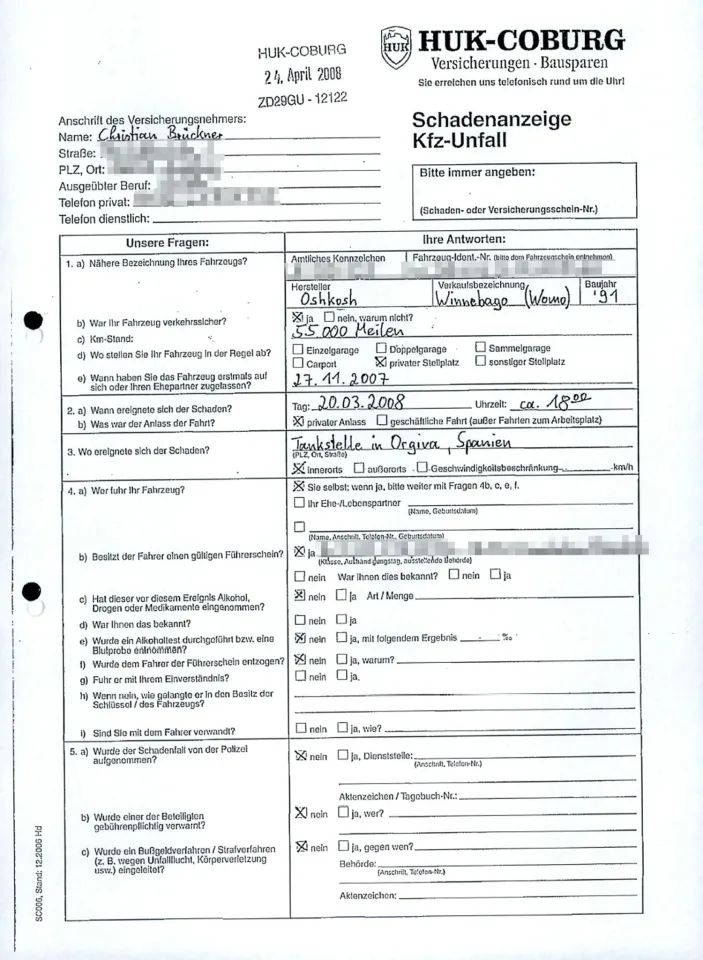 HUK-COBURG
24. April 2008
ZD29GU - 12122
HUK
HUK-COBURG
Versicherungen · Bausparen
Sie erreichen uns telefonisch rund um die Uhr!
Anschrift des Versicherungsnehmers:
Name: Christian Brückner
Straße:
PLZ, Ort:
Ausgeübter Beruf:
Telefon privat:
Telefon dienstlich:
Schadenanzeige
Kfz-Unfall
Bitte immer angeben:
(Schaden- oder Versicherungsschein-Nr.)
Unsere Fragen:
Ihre Antworten:
1. a) Nähere Bezeichnung Ihres Fahrzeugs?
Amtliches Kennzeichen
Fahrzeug-Ident.-Nr. (bitte dem Fahrzeugschein entnehmen)
Hersteller
Verkaufsbezeichnung
Baujahr
Oshkosh
Winnebago (Womo)
'91
b) War Ihr Fahrzeug verkehrssicher?
ja nein, warum nicht?
c) Km-Stand:
55000 Meilen
d) Wo stellen Sie Ihr Fahrzeug in der Regel ab?
Einzelgarage Doppelgarage Sammelgarage
Carport privater Stellplatz sonstiger Stellplatz
e) Wann haben Sie das Fahrzeug erstmals auf
sich oder Ihren Ehepartner zugelassen?
27.11.2007
2. a) Wann ereignete sich der Schaden?
Tag: 20.03.2008 Uhrzeit: ca. 18:00
b) Was war der Anlass der Fahrt?
privater Anlass geschäftliche Fahrt (außer Fahrten zum Arbeitsplatz)
3. Wo ereignete sich der Schaden?
Tankstelle in Orgiva, Spanien
(PLZ, Ort, Straße)
innerorts außerorts Geschwindigkeitsbeschränkung km/h
4. a) Wer fuhr Ihr Fahrzeug?
Sie selbst; wenn ja, bitte weiter mit Fragen 4b, c, e, f.
Ihr Ehe-/Lebenspartner
(Name, Geburtsdatum)
(Name, Anschrift, Telefon-Nr., Geburtsdatum)
b) Besitzt der Fahrer einen gültigen Führerschein?
ja
(Klasse, Aushändigungstag, ausstellende Behörde)
nein War Ihnen dies bekannt? nein ja
c) Hat dieser vor diesem Ereignis Alkohol,
Drogen oder Medikamente eingenommen?
nein ja Art / Menge
d) War Ihnen das bekannt?
nein ja
e) Wurde ein Alkoholtest durchgeführt bzw. eine
Blutprobe entnommen?
nein ja, mit folgendem Ergebnis ‰
f) Wurde dem Fahrer der Führerschein entzogen?
nein ja, warum?
g) Fuhr er mit Ihrem Einverständnis?
nein ja,
h) Wenn nein, wie gelangte er in den Besitz der
Schlüssel / des Fahrzeugs?
i) Sind Sie mit dem Fahrer verwandt?
nein ja, wie?
5. a) Wurde der Schadenfall von der Polizei
aufgenommen?
nein ja, Dienststelle:
(Anschrift, Telefon-Nr.)
Aktenzeichen / Tagebuch-Nr.:
b) Wurde einer der Beteiligten
gebührenpflichtig verwarnt?
nein ja, wer?
c) Wurde ein Bußgeldverfahren / Strafverfahren
(z. B. wegen Unfallflucht, Körperverletzung
usw.) eingeleitet?
nein ja, gegen wen?
Behörde:
(Anschrift, Telefon-Nr.)
Aktenzeichen:
SC005, Stand: 12.2006 Hd